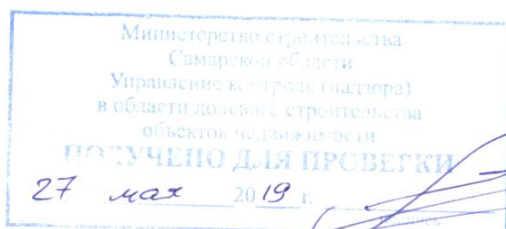 Министерство строительства
Самарской области
Управление контроля (надзора)
в области долевого строительства
объектов недвижимости
ПОЛУЧЕНО ДЛЯ ПРОВЕРКИ
27 мая 2019 г.